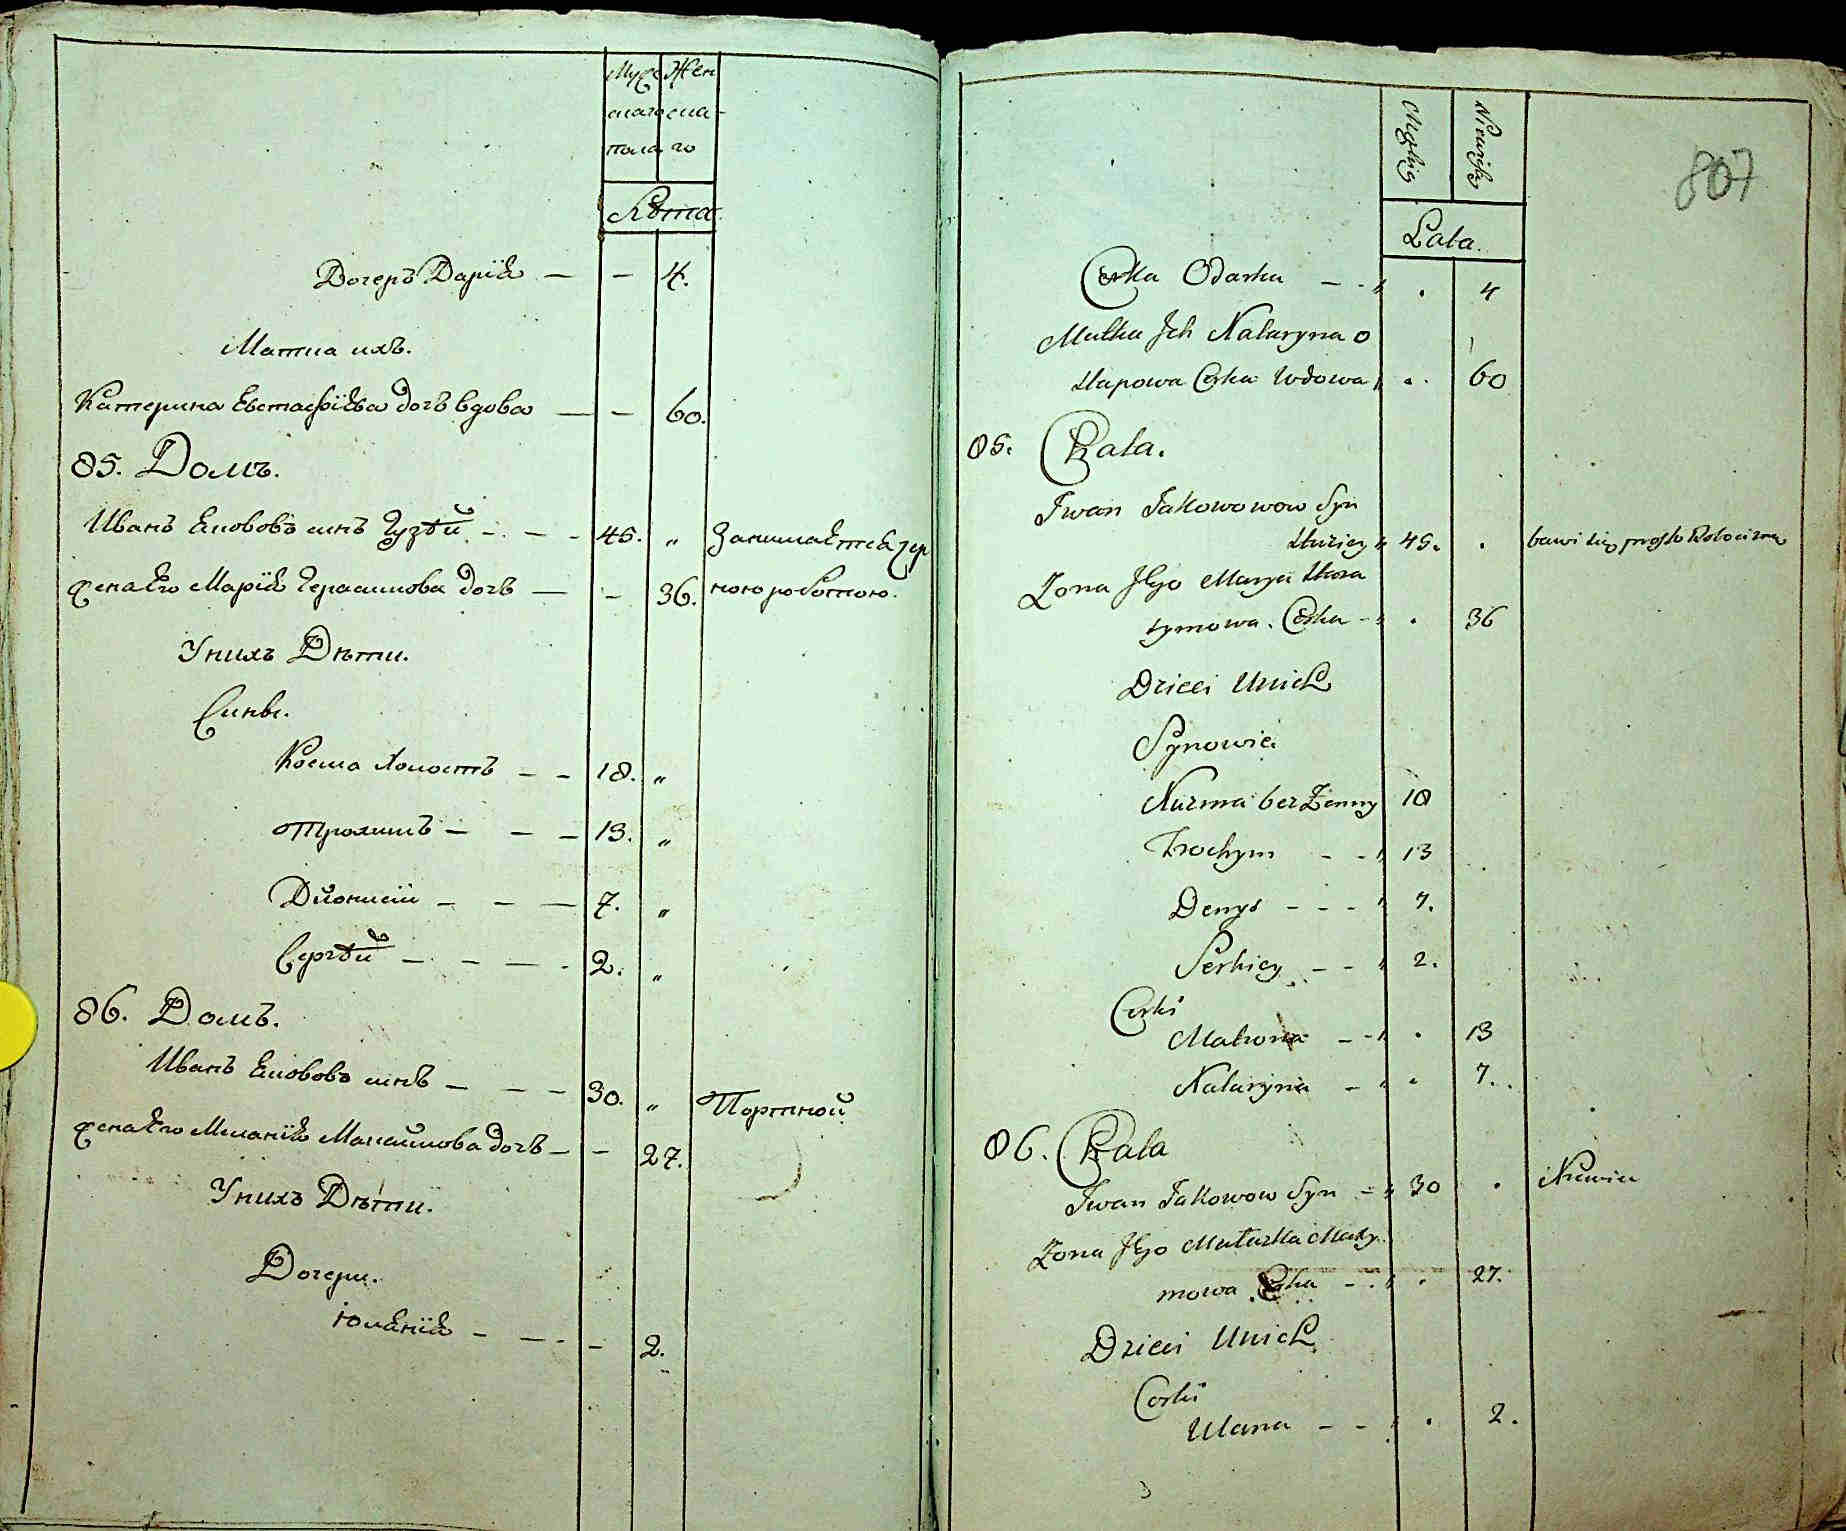 Муже Жен
скаго ска
пола го
Лѣта
Дочеръ Дарія — — 4.
Матка ихъ.
Катерина Евстафіева дочъ вдова — — 60.
85. Домъ.
Иванъ Якововъ синъ Гузѣй. - - - 45. „ Занимается чер
жена Его Марія Герасимова дочъ — - 36. ною роботою.
У нихъ Дѣти.
Сины.
Косма холостъ - - 18. „
Трохимъ - - - 13. „
Дионисій - - - 7. „
Сергѣй - - - - 2. „
86. Домъ.
Иванъ Якововъ синъ - - - 30. „ Портной
жена Его Меланія Маҡсимова дочъ - - 27.
У нихъ Дѣти.
Дочери.
Юлянія - - - - 2.
807
Męzkie Niewiesk
Lata.
Corka Odarka - - „ . 4
Matka Ich Kataryna O
stapowa Corka Wdowa „ . 60
85. Chata.
Iwan Jakowowow Syn
Huziey „ 45. . bawi się prosto Robocizną
Zona Jego Marya Hora
symowa Corka - „ . 36
Dzieci Unich
Synowie
Kuzma bez Zenny 18
Trochym - - „ 13
Denys - - - „ 7.
Serhiey - - „ 2.
Corki
Matrona - - „ . 13
Kataryna - „ . 7.
86. Chata
Iwan Jakowow Syn - „ 30 . Krawiec
Zona Jego Małaszka Maxy
mowa Corka - . „ . 27.
Dzieci Unich
Corki
Ulana - - „ . 2.